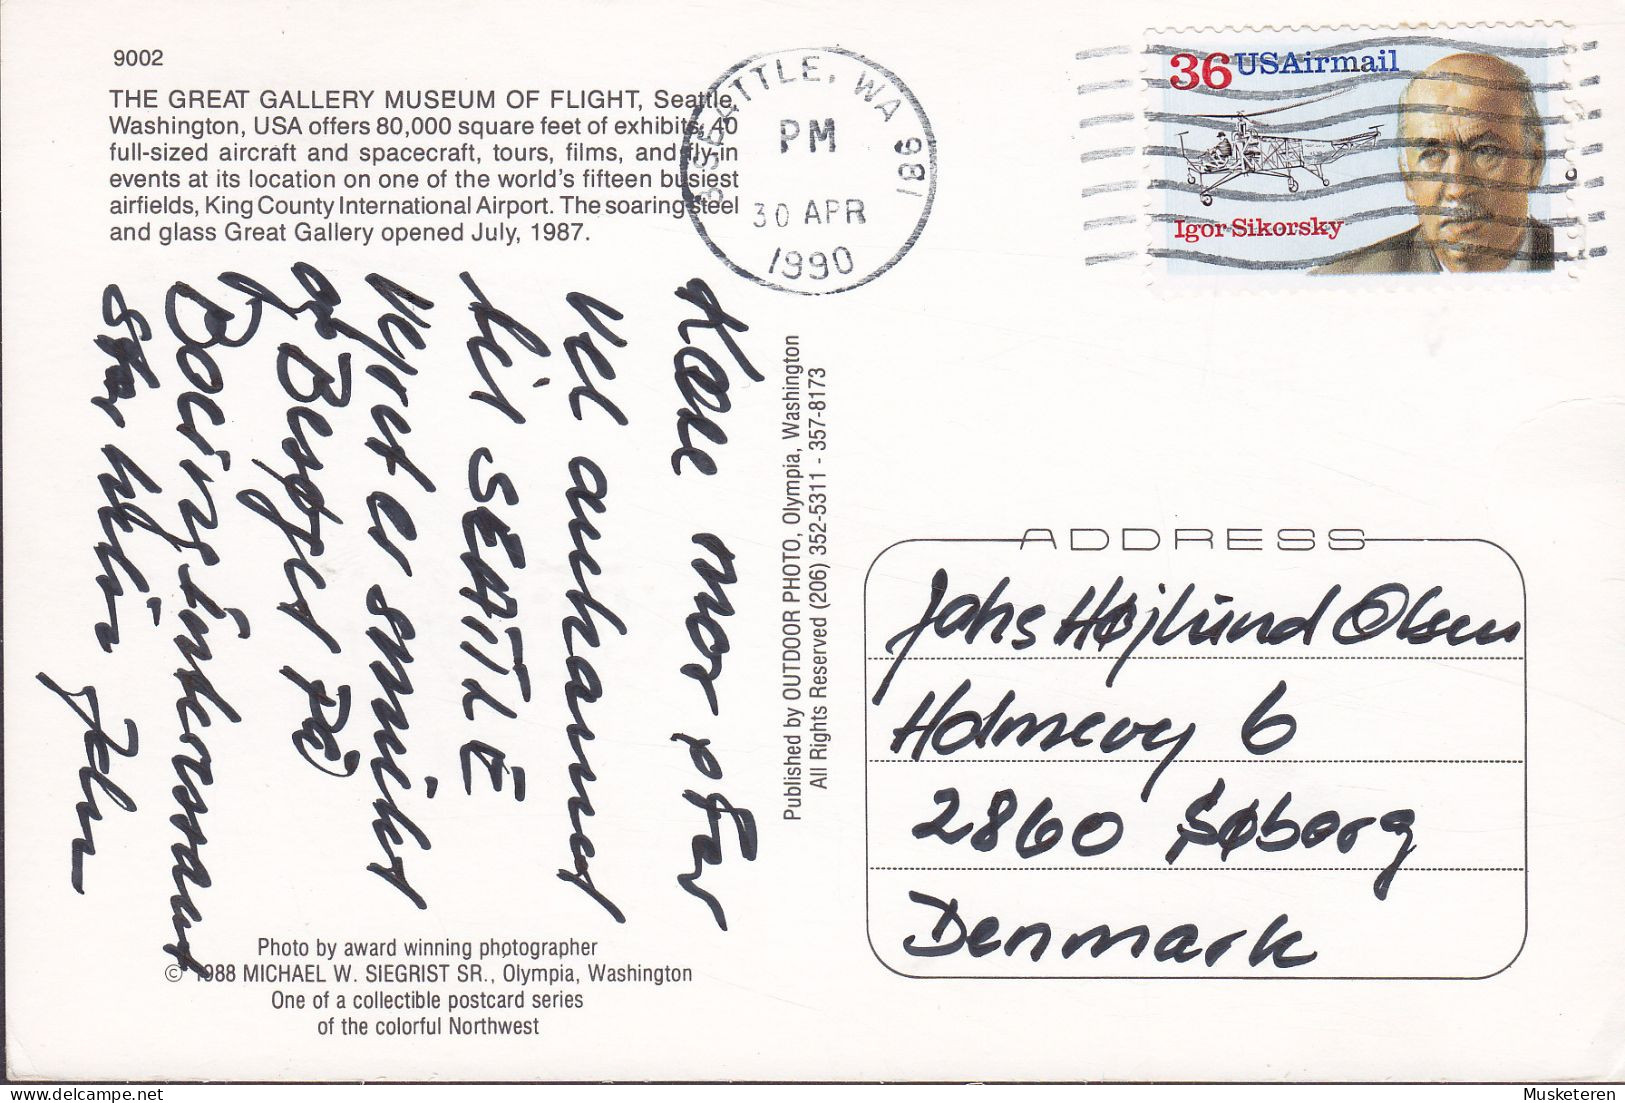 9002
THE GREAT GALLERY MUSEUM OF FLIGHT, Seattle,
Washington, USA offers 80,000 square feet of exhibits, 40
full-sized aircraft and spacecraft, tours, films, and fly-in
events at its location on one of the world's fifteen busiest
airfields, King County International Airport. The soaring steel
and glass Great Gallery opened July, 1987.
SEATTLE, WA 981
PM
30 APR
1990
36 USAirmail
Igor Sikorsky
Kære mor & far
Vel ankommet
til SEATTLE
Vejret er smukt
og Bent
Boeing
Published by OUTDOOR PHOTO, Olympia, Washington
All Rights Reserved (206) 352-5311 - 357-8173
ADDRESS
Højlund Olsen
Holmevej 6
2860 Søborg
Denmark
Photo by award winning photographer
© 1988 MICHAEL W. SIEGRIST SR., Olympia, Washington
One of a collectible postcard series
of the colorful Northwest
Musketeren